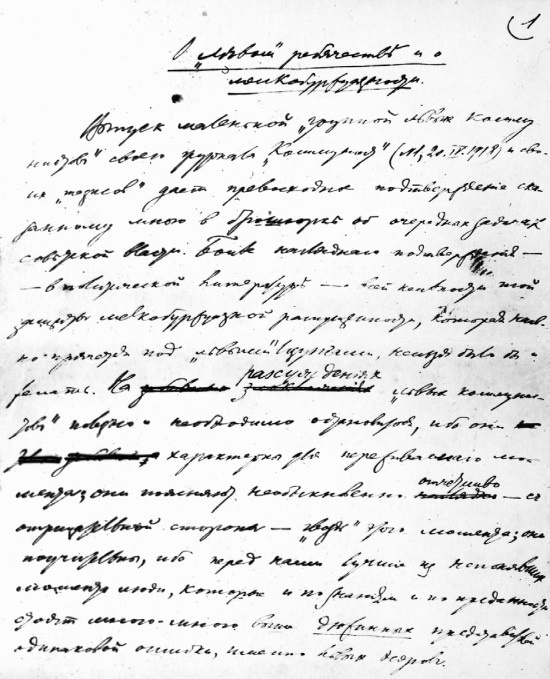 1
О „лѣвом“ ребячествѣ и о
мелкобуржуазности.
Выпуск маленькой „группой лѣвых комму
нистов“ своего журнала „Коммунист“ (№1, 20.IV.1918) и сво-
их „тезисов“ дает превосходное подтверждение ска-
занному мною в брошюрѣ об очередных задачах
совѣтской власти. Более наглядного подтверждения —
— в политической литературѣ — всей наивности той
защиты мелкобуржуазной распущенности, которая
прячется под „лѣвыми“ лозунгами, нельзя было бы
желать. На рассуждениях „лѣвых коммунис-
тов“ полезно и необходимо остановиться, ибо они
характерны для переживаемого мо-
мента; они поясняют необыкновенно отчетливо — с
отрицательной стороны — „гвоздь“ этого момента; они
поучительны, ибо перед нами лучшие из непонявших
момента люди, которые и по знаниям и по преданности
стоят много-много выше дюжинных представителей
одинаковой ошибки, именно лѣвых эсеров.